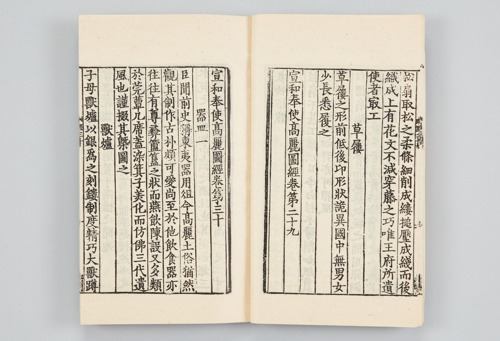 松扇取松之柔條細削成縷搥壓成綫而後
織成上有花文不減穿藤之巧唯王府所遺
使者最工
草屨
草屨之形前低後卬形狀詭異國中無男女
少長悉履之
宣和奉使高麗圖經卷第二十九
宣和奉使高麗圖經卷第三十
器皿一
臣聞前史東夷器用俎今高麗土俗猶然
觀其制作古朴頗可愛尚至於他飲食器亦
往往有尊彝簠簋之狀而燕飲陳設又多類
於莞簟几席蓋染箕子美化而仿佛三代遺
風也謹掇其槩圖之
獸爐
子母獸爐以銀為之刻鏤制度精巧大獸蹲